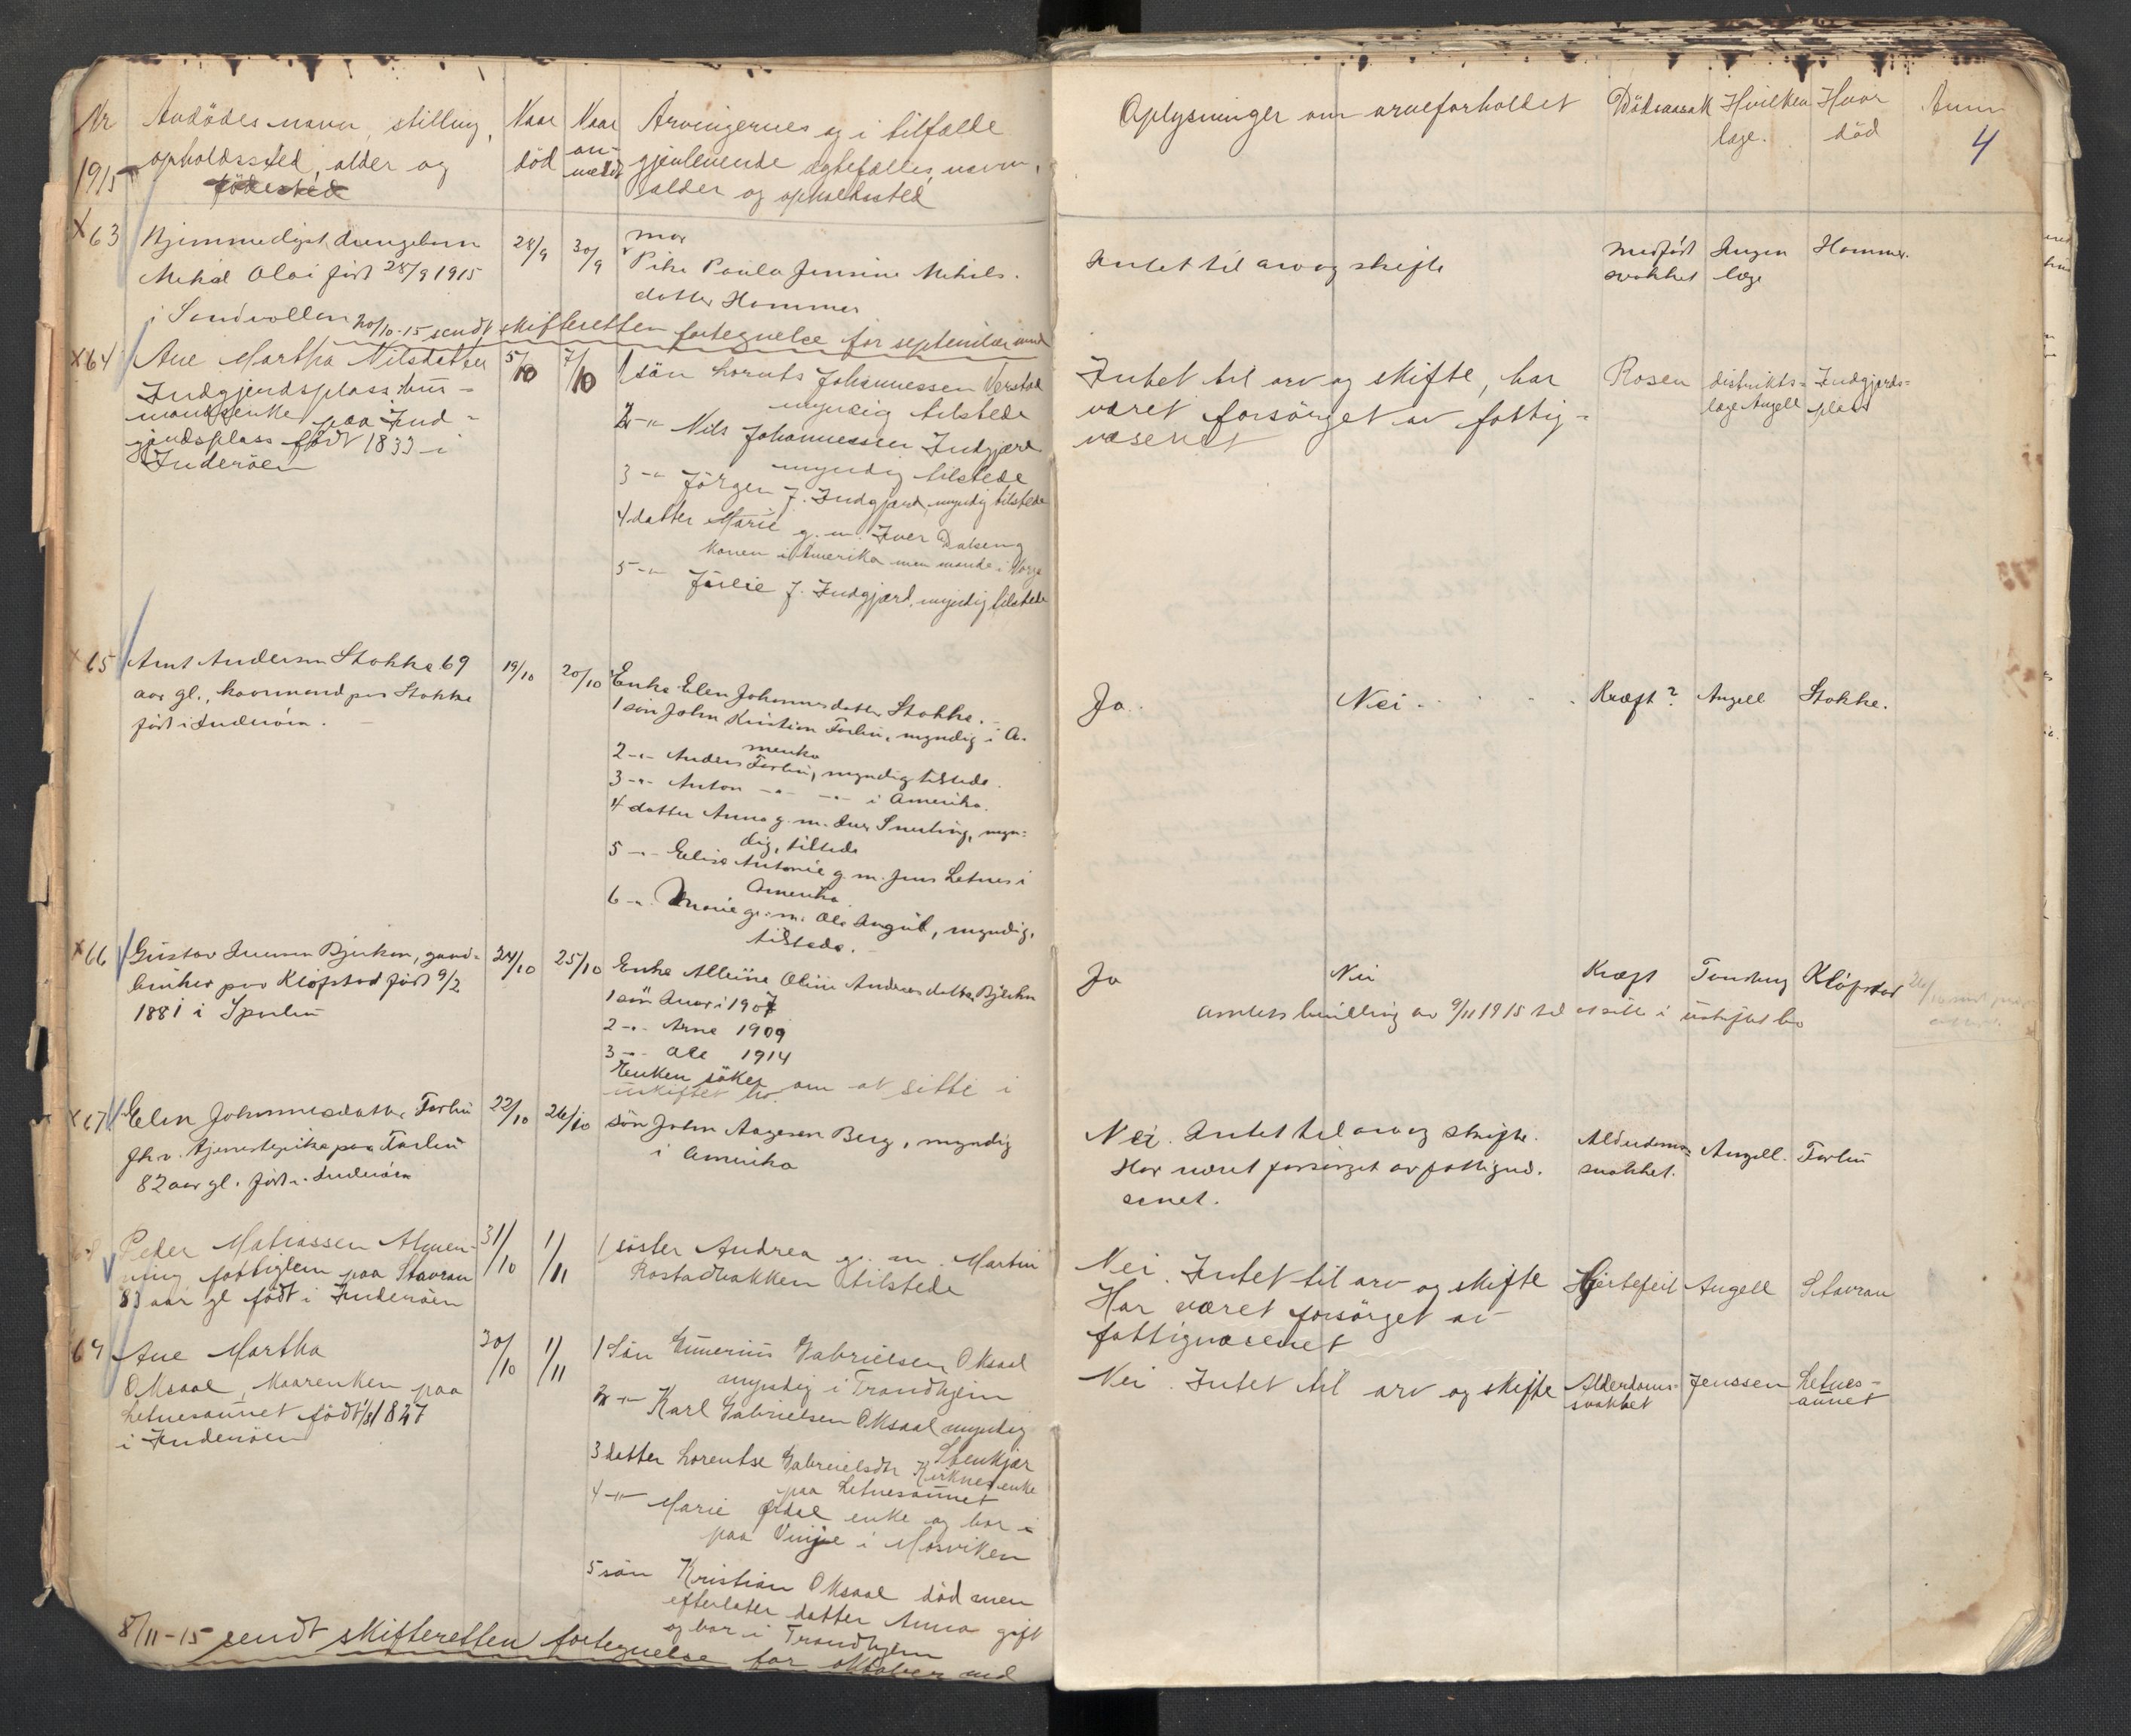 Nr Avdödes navn, stilling,
1915 opholdssted, alder og
födested
Naar död
Naar anmeldt
Arvingernes og i tilfælde
gjenlevende ægtefælles navn,
alder og opholdssted
Oplysninger om arveforholdet
Dödsaarsak
Hvilken læge.
Hvor död
Anm
4
x63 Hjemmedøpt drengebarn
Mekal Olai født 28/9 1915
i Sandvollan
28/9
30/9
mor
Pike Paula Jensine Mekals-
datter Hammer
Intet til arv og skifte
Medfødt svakhet
Ingen læge
Hammer.
20/10-15 sendt skifteretten fortegnelse for september mnd
x64 Ane Martha Nilsdatter
Indgjerdsplass, hus-
mandsenke paa Ind-
gjerdsplass født 1833 i
Inderöen
5/10
7/10
1 sön Lornts Johannessen
myndig tilstede
2 -"- Nils Johannessen Indgjærd
myndig tilstede
3 -"- Jörgen J. Indgjærd, myndig tilstede
4 datter Marie g. m. Iver Dalseng
Konen i Amerika men mande i Norge
5 -"- Julie J. Indgjærd, myndig tilstede
Intet til arv og skifte, har
været forsörget av fattig-
væsenet
Rosen
distrikts-
læge Angell
Indgjerds-
plass
x65 Arnt Andersen Stokke 69
aar gl., kaarmand paa Stokke
født i Inderøen.
19/10
20/10
Enke Elen Johannesdatter Stokke.
1 søn John Kristian Forlin, myndig i A-
merika
2 -"- Anders Forlin, myndig tilstede.
3 -"- Anton -"- -"- i Amerika.
4 datter Anna g. m. myn-
dig, tilstede
5 -"- Elise Antonie g. m. Jens Letnes i
Amerika
6 -"- Marie g. m. Ole myndig,
tilstede.
Ja
Nei
Kræft?
Angell
Stokke.
x66 Gustav Bjerken, gaard-
bruker paa Kløfstad født 9/2
1881 i Sparbu
24/10
25/10
Enke Oline Andreasdatter Bjerken
1 søn 1907
2 -"- Arne 1909
3 -"- Ole 1914
Enken söker om at sitte i
uskiftet bo.
Ja
Nei
Kræft
Kløfstad
Amtets bevilling av 9/11 1915 til at sitte i uskiftet bo
x67 Elen Johannesdatter Forlin
fhv. tjenestepike paa Forlin
82 aar gl. født i Inderøen
22/10
26/10
søn John Aagesen Berg, myndig
i Amerika
Nei. Intet til arv og skifte.
Har været forsørget av fattigvæ-
senet.
Alderdoms-
svakhet.
Angell.
Forlin
68 Peder Matiassen Almen-
ning fattiglem paa Stavran
83 aar gl födt i Inderöen
31/10
1/11
1 söster Andrea g. m. Martin
Rostadbakken tilstede
Nei. Intet til arv og skifte
Har været forsörget av
fattigvæsenet
Hjertefeil
Angell
Stavran
69 Ane Martha
Oksaal, Kaarenken paa
Letnesaunet födt 1/8 1827
i Inderöen
30/10
1/11
1 Sön Gunerius Gabrielsen Oksaal
myndig i Trondhjem
2 -"- Karl Gabrielsen Oksaal myndig
Stenkjær
3 datter Lorentse Gabrielsdtr Kirknes enke
paa Letnesaunet
4 -"- Marie Ørdal enke og bor i
paa Vinje i Mosviken
5 sön Kristian Oksaal död men
efterlater datter Anna gift
og bor i Trondhjem
Nei. Intet til arv og skifte
Alderdoms-
svakhet
Jenssen
Letnes-
aunet
8/11-15 sendt skifteretten fortegnelse for oktober mnd